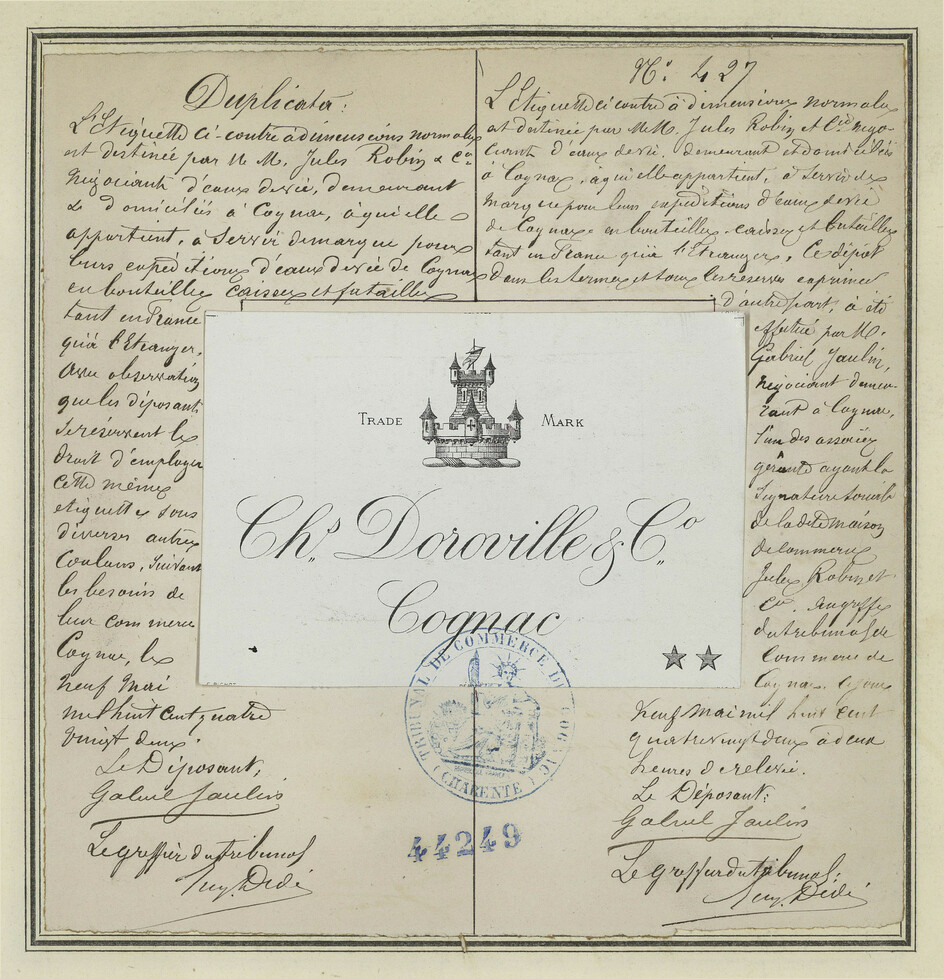 Duplicata:
L'Etiquette ci-contre à dimensions normales
est destinée par M M. Jules Robin & Cie
Négociants d'eaux de vie, demeurant
& domiciliés à Cognac, à qui elle
appartient, à servir de marque pour
leurs expéditions d'eaux de vie de Cognac
en bouteilles caisses et futailles
tant en France
qu'à l'Etranger,
Avec observation
que les déposants
se réservent le
droit d'employer
cette même
etiquette sous
diverses autres
Couleurs, suivant
les besoins de
leur commerce
Cognac, le
neuf Mai
mil huit cent quatre
vingt deux.
Le Déposant,
Gabriel Jaulin
Le greffier du tribunal
Dédé
No. 427
L'Etiquette ci contre à dimensions normales
est destinée par MM. Jules Robin et Cie négo-
ciants d'eaux de vie, demeurant et domiciliés
à Cognac, à qui elle appartient, à servir de
marque pour leurs expéditions d'eaux de vie
de Cognac en bouteilles, caisses et futailles
tant en France qu'à l'Etranger. Ce dépôt
dans les termes et sous les réserves exprimées
d'autre part, à été
effectué par M.
Gabriel Jaulin,
négociant demeu-
rant à Cognac,
l'un des associés
gérants ayant la
signature sociale
de la dite maison
de commerce
Jules Robin et
Cie. au greffe
du tribunal de
Commerce de
Cognac, ce jour
neuf mai mil huit cent
quatre vingt deux à deux
heures de relevée.
Le Déposant:
Gabriel Jaulin
Le greffier du tribunal:
Dédé
TRADE MARK
Chs. Doroville & Co.
Cognac
TRIBUNAL DE COMMERCE DE COGNAC
(CHARENTE)
44249